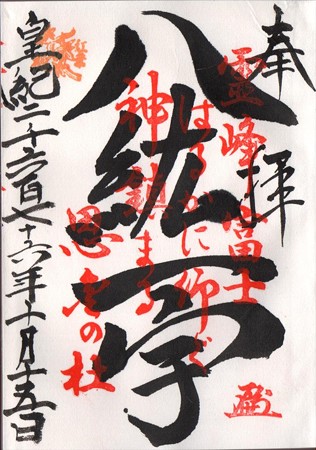 奉拝
八紘一宇
霊峰富士
はるかに仰ぐ
神鎮まる
恩金の杜
皇紀二千六百七十六年十月十五日